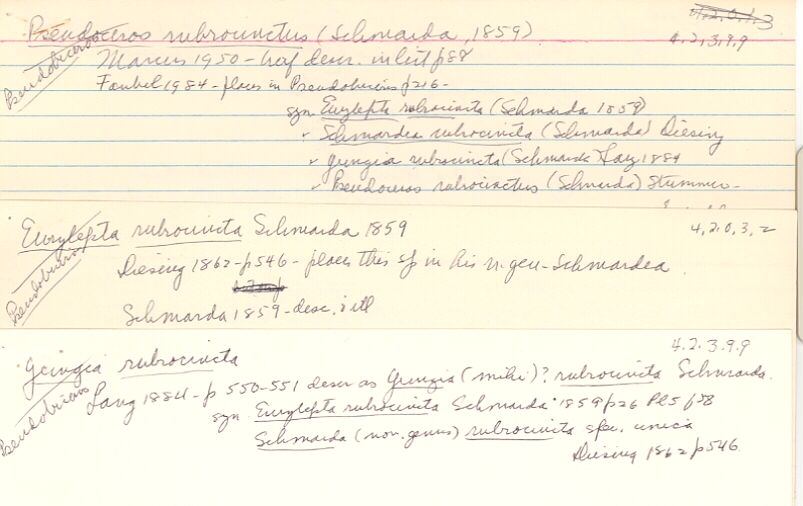 4.2.0.1.3
Pseudoceros rubrocinctus (Schmarda, 1859)
4.2.3.9.9
Pseudobiceros
Marcus 1950 - brief descr. in lit p88
Faubel 1984 - places in Pseudobiceros p216 -
syn Eurylepta rubrocincta (Schmarda 1859)
" Schmardea rubrocincta (Schmarda) Diesing
" Yungia rubrocincta (Schmarda) Lang 1884
" Pseudoceros rubrocinctus (Schmarda) Stummer-
Eurylepta rubrocincta Schmarda 1859
4.2.0.3.2
Pseudobiceros
Diesing 1862 - p546 - places this sp in his n.gen - Schmardea
Schmarda 1859 - desc. &
4.2.3.9.9
Yungia rubrocincta
Pseudobiceros
Lang 1884 - p 550-551 descr as Yungia (mihi)? rubrocincta Schmarda.
syn. Eurylepta rubrocincta Schmarda 1859 p26 Pl 5 f58
Schmarda (nov. genus) rubrocincta spec. unica
Diesing 1862 p546